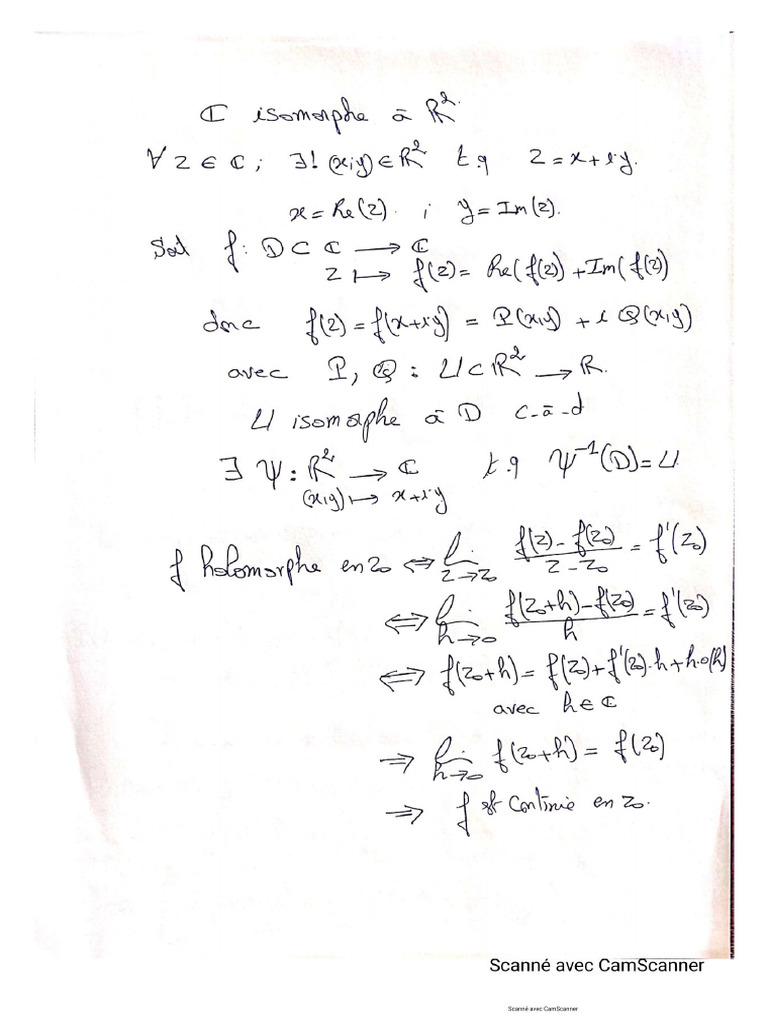 ℂ isomorphe à ℝ².
∀ z ∈ ℂ ; ∃! (x,y) ∈ ℝ² t.q z = x + iy.
x = Re(z). ; y = Im(z).
Soit f : D ⊂ ℂ ⟶ ℂ
z ⟼ f(z) = Re(f(z)) + Im(f(z)
donc f(z) = f(x+iy) = P(x,y) + i Q(x,y)
avec P, Q : U ⊂ ℝ² ⟶ ℝ.
U isomorphe à D c-à-d
∃ Ψ : ℝ² ⟶ ℂ t.q Ψ⁻¹(D) = U
(x,y) ⟼ x+iy
f holomorphe en z₀ ⟺ lim_{z→z₀} (f(z) - f(z₀))/(z - z₀) = f'(z₀)
⟺ lim_{h→0} (f(z₀+h) - f(z₀))/h = f'(z₀)
⟺ f(z₀+h) = f(z₀) + f'(z₀).h + h.o(h)
avec h ∈ ℂ
⟹ lim_{h→0} f(z₀+h) = f(z₀)
⟹ f est continue en z₀.
Scanné avec CamScanner
Scanné avec CamScanner